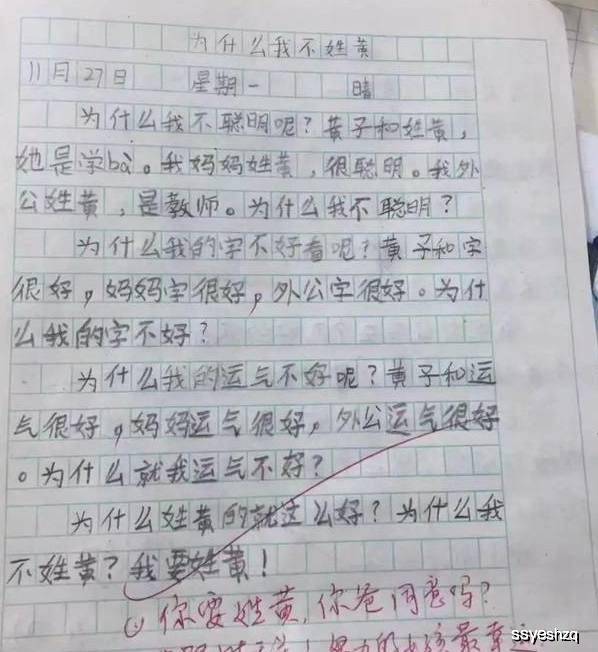 为什么我不姓黄
11月27日 星期一 晴
为什么我不聪明呢？黄子和姓黄，
她是学bà。我妈妈姓黄，很聪明。我外
公姓黄，是教师。为什么我不聪明？
为什么我的字不好看呢？黄子和字
很好，妈妈字很好，外公字很好。为什
么我的字不好？
为什么我的运气不好呢？黄子和运
气很好，妈妈运气很好，外公运气很好
。为什么就我运气不好？
为什么姓黄的就这么好？为什么我
不姓黄？我要姓黄！
你要姓黄，你爸同意吗？
最幸运
ssyeshzq